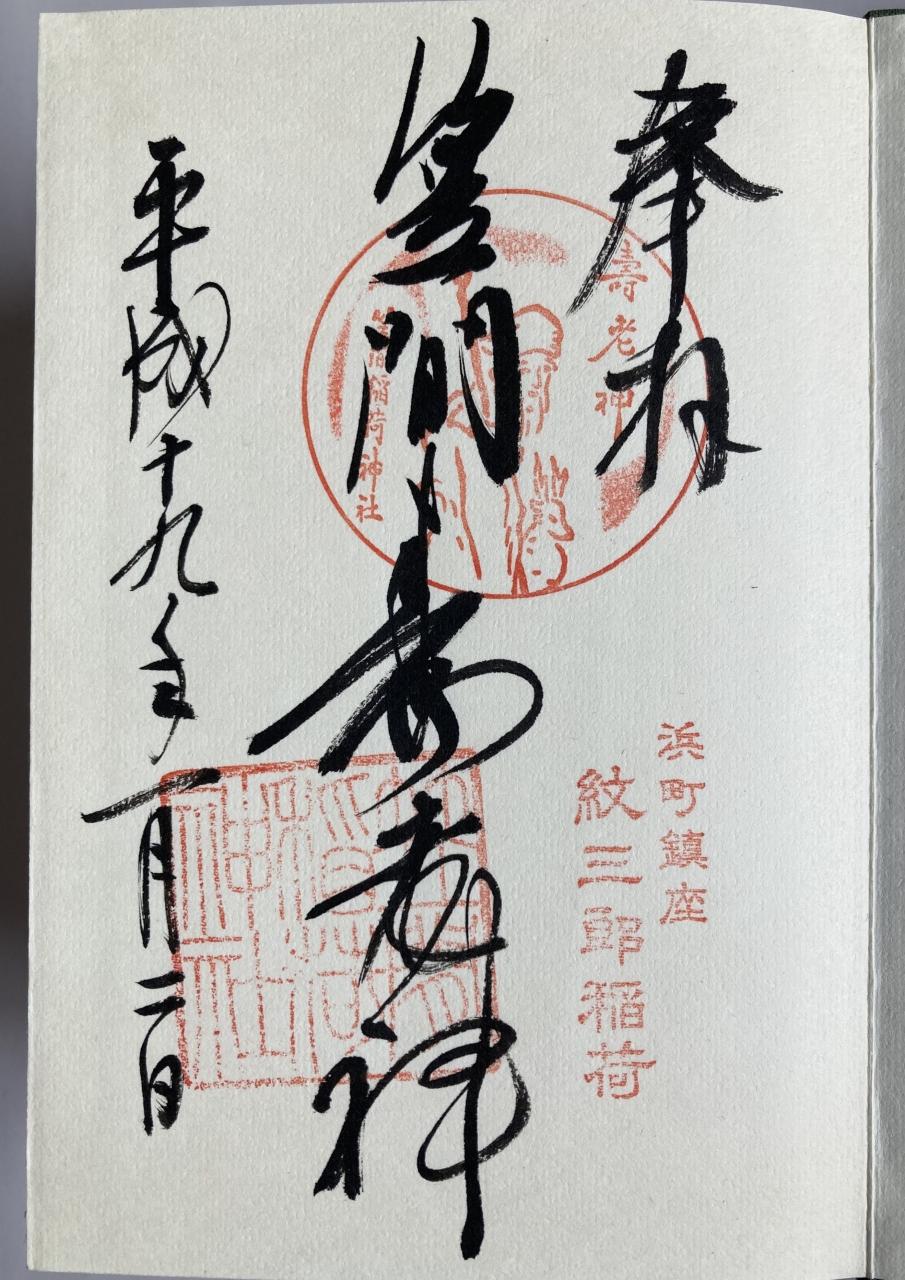 奉拝
壽老神
笠間稲荷神社
浜町鎮座
紋三郎稲荷
笠間壽老神
平成十九年一月二日